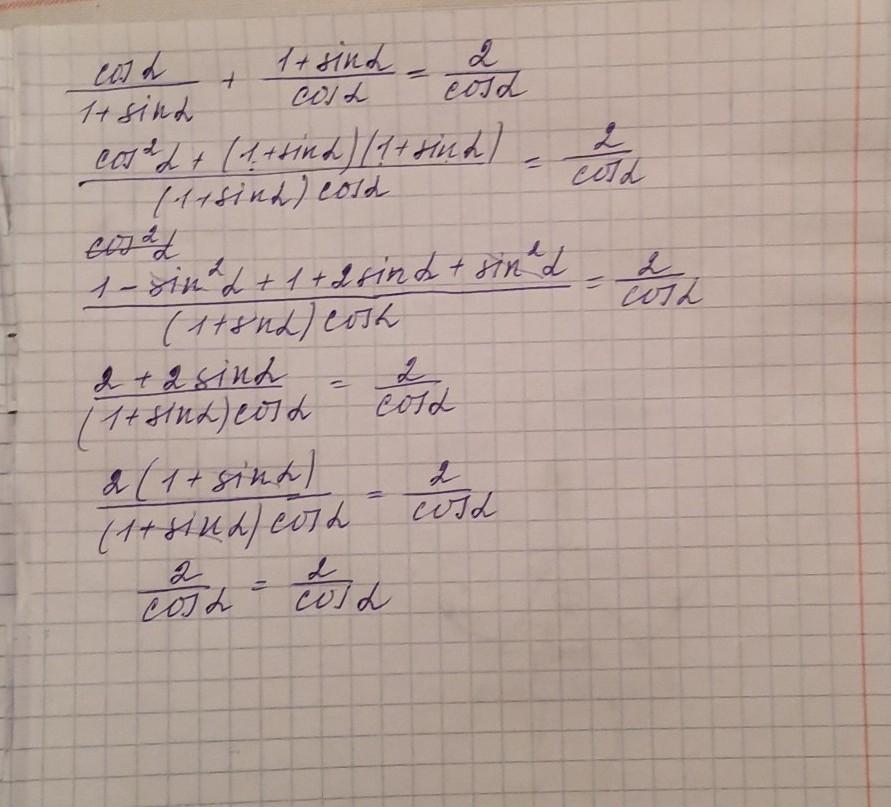 cosα/(1+sinα) + (1+sinα)/cosα = 2/cosα
(cos²α + (1+sinα)(1+sinα))/((1+sinα)cosα) = 2/cosα
cos²α
(1 - sin²α + 1 + 2sinα + sin²α)/((1+sinα)cosα) = 2/cosα
(2 + 2sinα)/((1+sinα)cosα) = 2/cosα
2(1+sinα)/((1+sinα)cosα) = 2/cosα
2/cosα = 2/cosα